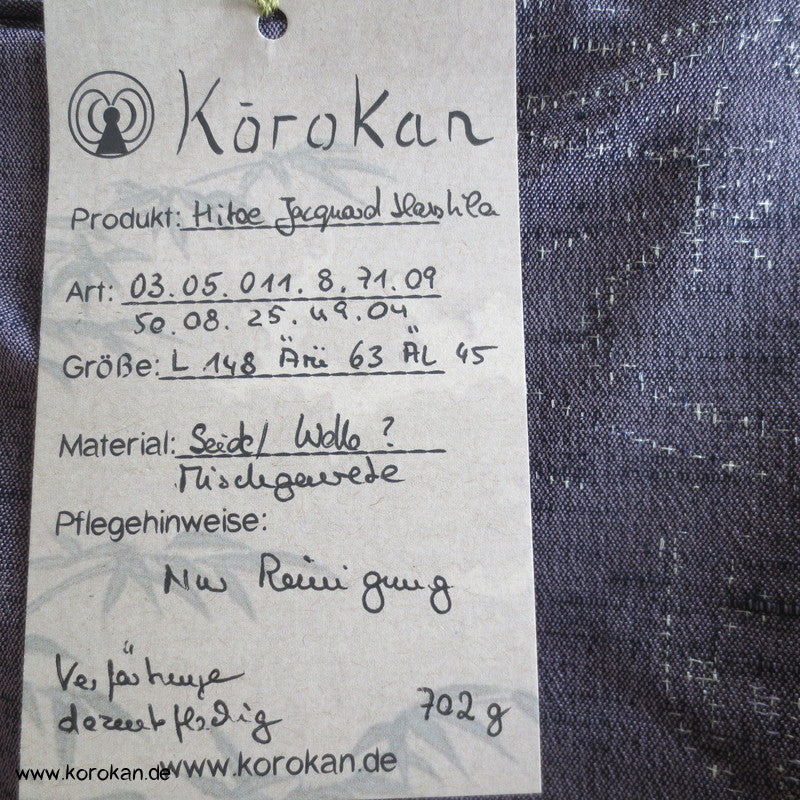 Kōrokan
Produkt: Hitoe Jacquard
Art: 03.05.011.8.71.09
So.08.25.49.04
Größe: L 148 Ärü 63 ÄL 45
Material: Seide/ Wolle?
Mischgewebe
Pflegehinweise:
Nur Reinigung
Verfärbung
dezent fleckig
702 g
www.korokan.de
www.korokan.de